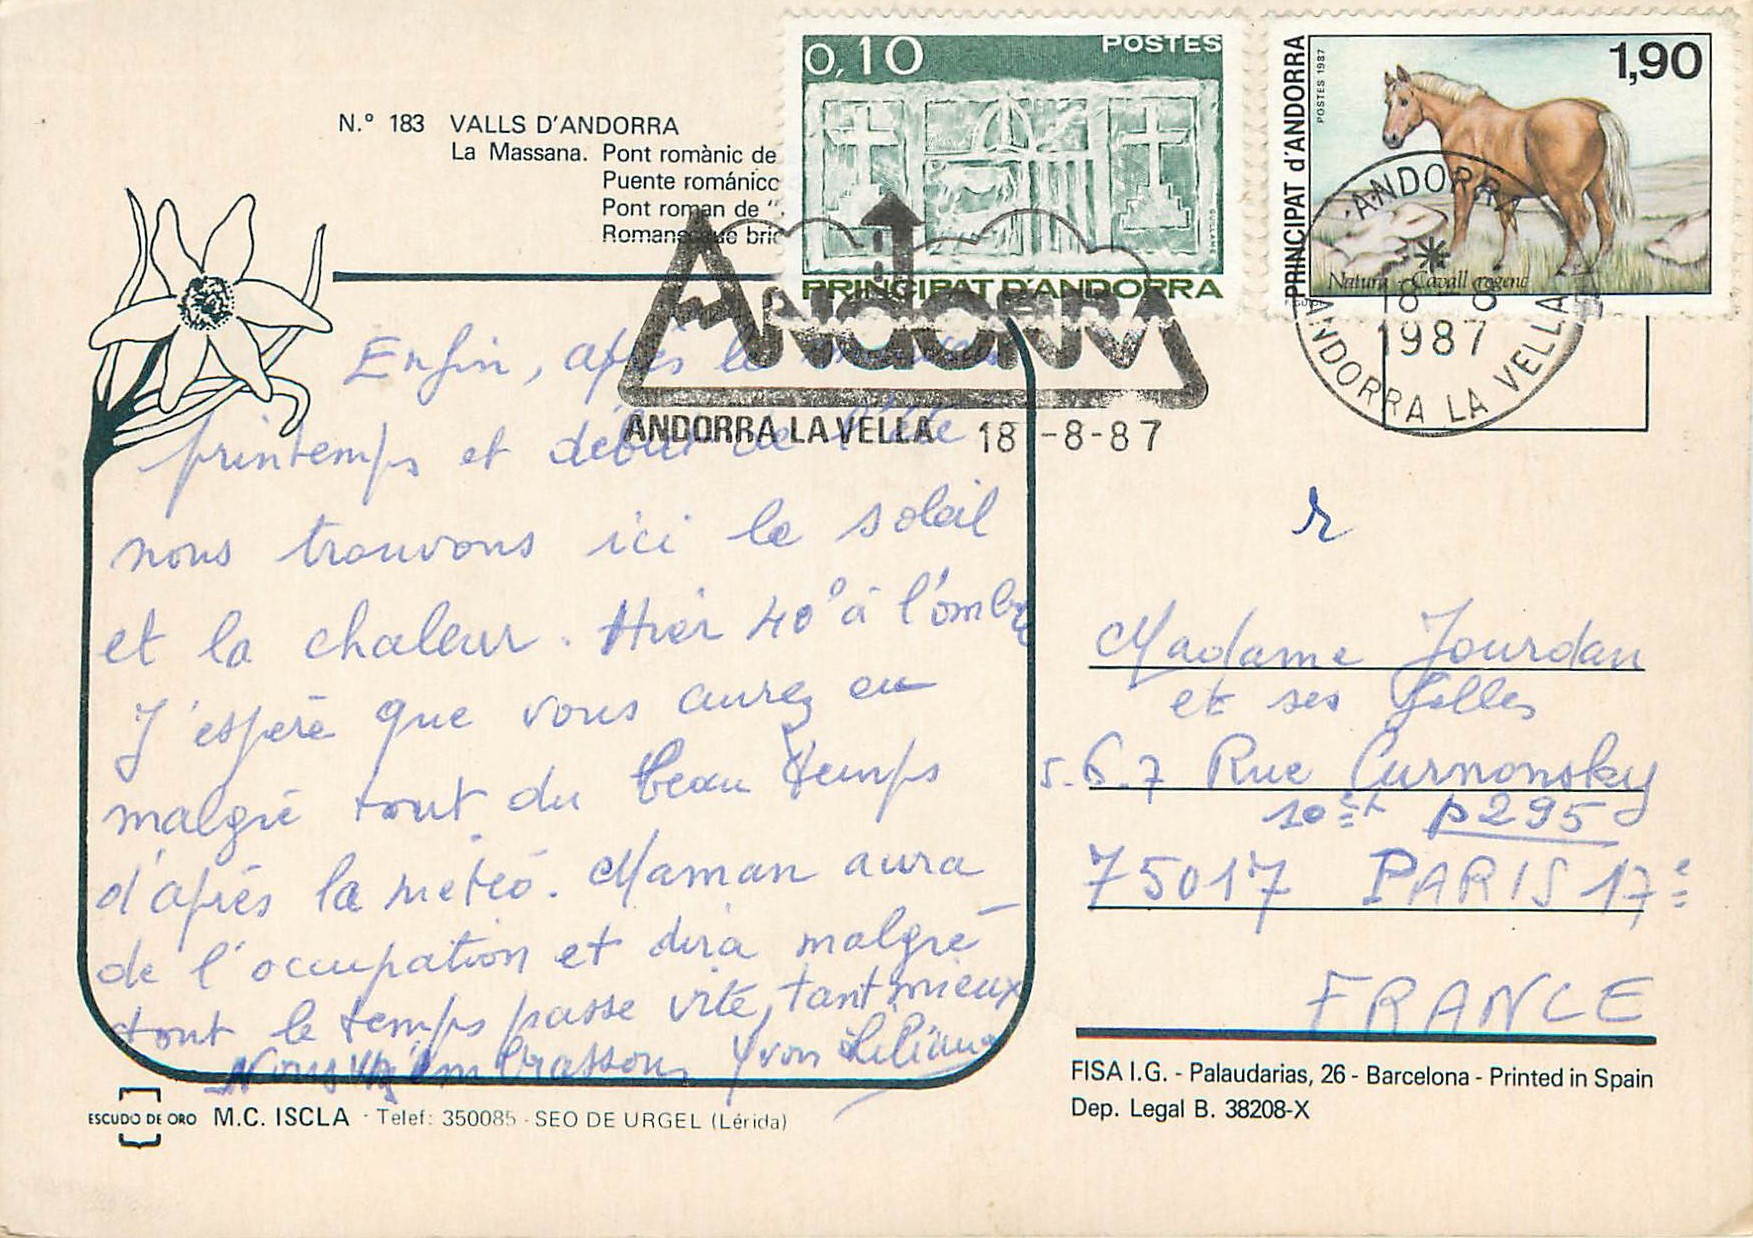 N.º 183 VALLS D'ANDORRA
La Massana. Pont romànic de
Puente románico
Pont roman de "
Romanesque bric
0,10 POSTES
PRINCIPAT D'ANDORRA
1,90
PRINCIPAT d'ANDORRA
POSTES 1987
Natura - Cavall rogenc
ANDORRA
ANDORRA LA VELLA 18 -8-87
ANDORRA
18 8
1987
ANDORRA LA VELLA
Enfin, après le mauvais
printemps et début de l'été
nous trouvons ici le soleil
et la chaleur. Hier 40° à l'ombre
J'espère que vous aurez eu
malgré tout du beau temps
d'après la météo. Maman aura
de l'occupation et dira malgré
tout le temps passe vite, tant mieux
Nous vs embrassons Yvon Liliane
r
Madame Jourdan
et ses filles
5.6.7 Rue Curnonsky
10è p295
75017 PARIS 17è
FRANCE
ESCUDO DE ORO M.C. ISCLA - Telef: 350085 - SEO DE URGEL (Lérida)
FISA I.G. - Palaudarias, 26 - Barcelona - Printed in Spain
Dep. Legal B. 38208-X